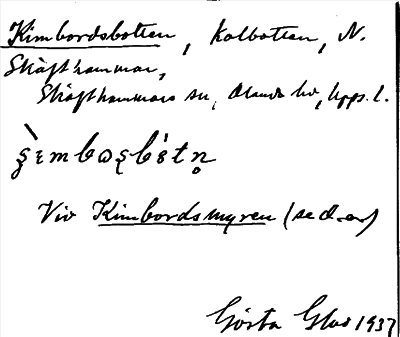 Kimbordsbotten, kolbotten, N.
Skäfthammar,
Skäfthammars sn, Olands hd, Upps. l.
Vid Kimbordsmyren (se d. o.)
Gösta Glas 1937